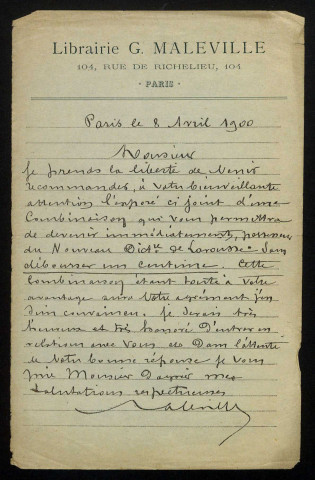 Librairie G. MALEVILLE
104, RUE DE RICHELIEU, 104
PARIS
Paris le 8 Avril 1900
Monsieur
Je prends la liberté de venir
recommander, à votre bienveillante
attention l'exposé ci joint d'une
Combinaison qui vous permettra
de devenir immédiatement, possesseur
du Nouveau Dict.re de Larousse Sans
débourser un centime. Cette
Combinaison étant toute à votre
avantage aura votre agrément j'en
suis convaincu. Je serais très
heureux et très honoré d'entrer en
relations avec vous et Dans l'attente
de votre bonne réponse Je vous
prie Monsieur D'agréer mes
salutations respectueuses
Maleville